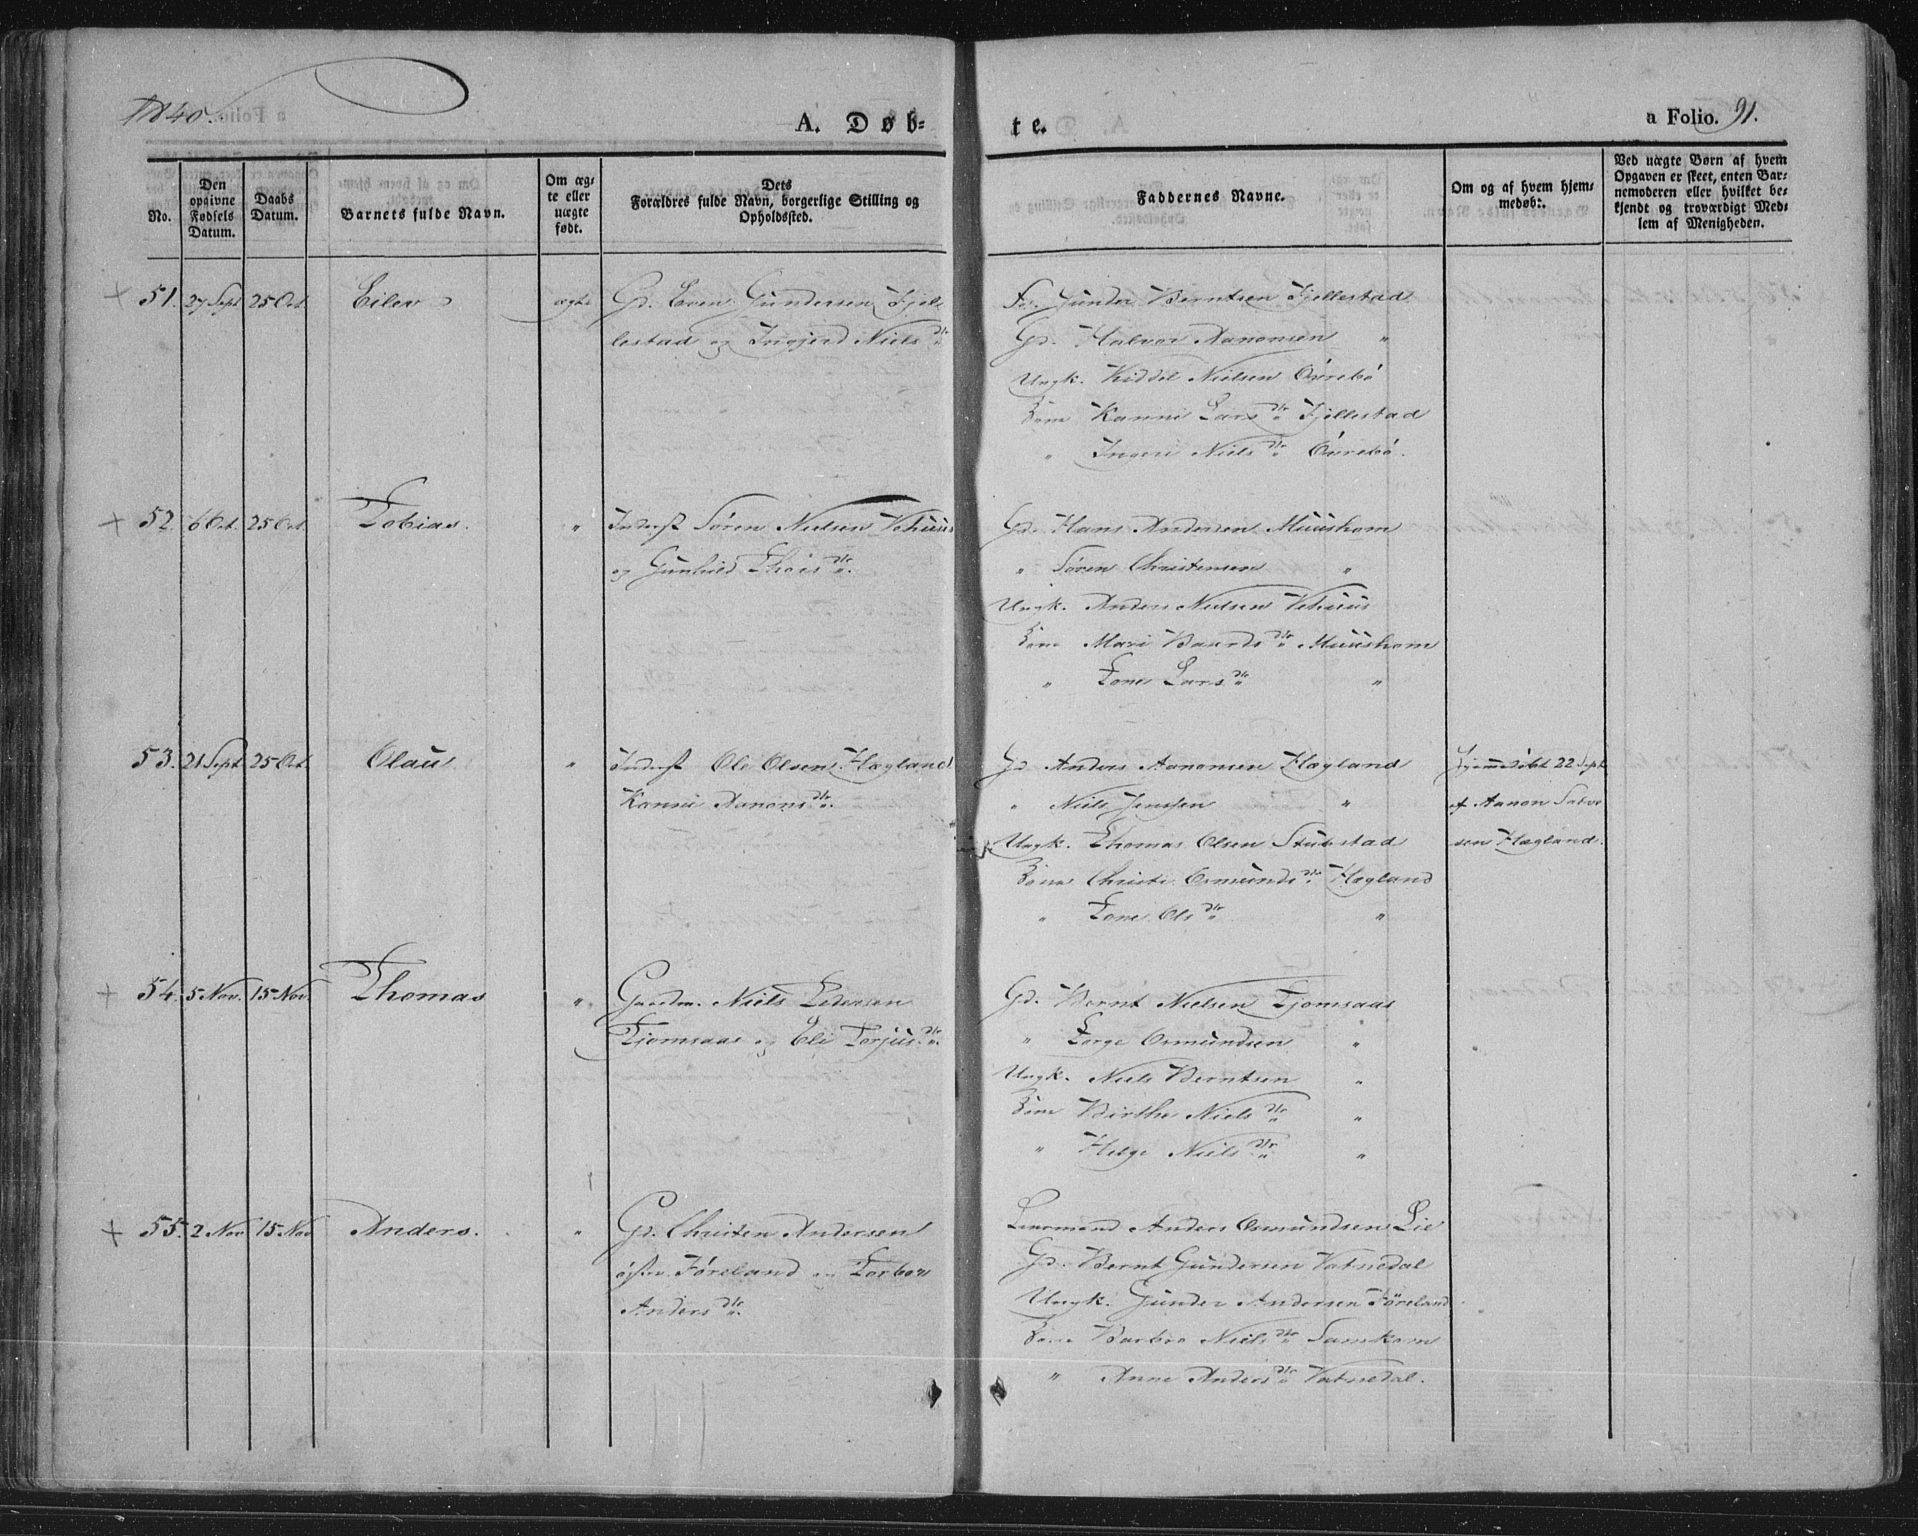 1840.
A. Døb-
te.
a Folio. 91.
No.
Den opgivne Fødsels Datum.
Daabs Datum.
Barnets fulde Navn.
Om ægte eller uægte født.
Dets Forældres fulde Navn, borgerlige Stilling og Opholdssted.
Faddernes Navne.
Om og af hvem hjemmedøbt.
Ved uægte Børn af hvem Opgaven er skeet, enten Barnemoderen eller hvilket bekjendt og troværdigt Medlem af Menigheden.
51. 27 Sept 25 Oct Eilev ægte Gd. Even Gundersen Fjel-
lestad og Ingjerd Nielsdtr
Gunder Berntsen Fjellestad
Gd. Halvor Aanonsen "
Ungk. Kiddel Nielsen Øvrebø
Kone Kanni Larsdtr Fjellestad
" Ingeri Nielsdtr Øvrebø.
52. 6 Oct. 25 Oct. Tobias. " Inderst Søren Nielsen Vehuus
og Gunhild Dtr.
Gd. Hans Andersen Muushom
" Søren Christensen "
Ungk. Anders Nielsen Vehuus
Kone Mari Baardsdtr Muushom
" Tone Larsdtr "
53. 21 Sept 25 Oct Olau " Inderst Ole Olsen Hægland
Kanni Aanonsdtr.
Gd Anders Aanonsen Hægland
" Niels Jenssen "
Ungk. Thomas Olsen Stubstad
Kone Christi Osmundsdtr Hægland
" Tone Olsdtr "
Hjemmedøbt 22 Sept
af Aanon Salve
sen Hægland.
54. 5 Nov. 15 Nov. Thomas " Gaardm. Niels Pedersen
Tjomsaas og Eli Torjusdtr.
Gd. Bernt Nielsen Tjomsaas
" Torge Osmundsen "
Ungk. Niels Berntsen "
Kone Birthe Nielsdtr "
" Helge Nielsdtr "
55. 2 Nov 15 Nov Anders. " Gd. Christen Andersen
østre Føreland og Torbor
Andersdtr.
Lensmand Anders Osmundsen Lie
Gd. Bernt Gundersen Vatnedal
Ungk. Gunder Andersen Føreland
Kone Barbro Nielsdtr Samkom
" Anne Andersdtr Vatnedal.